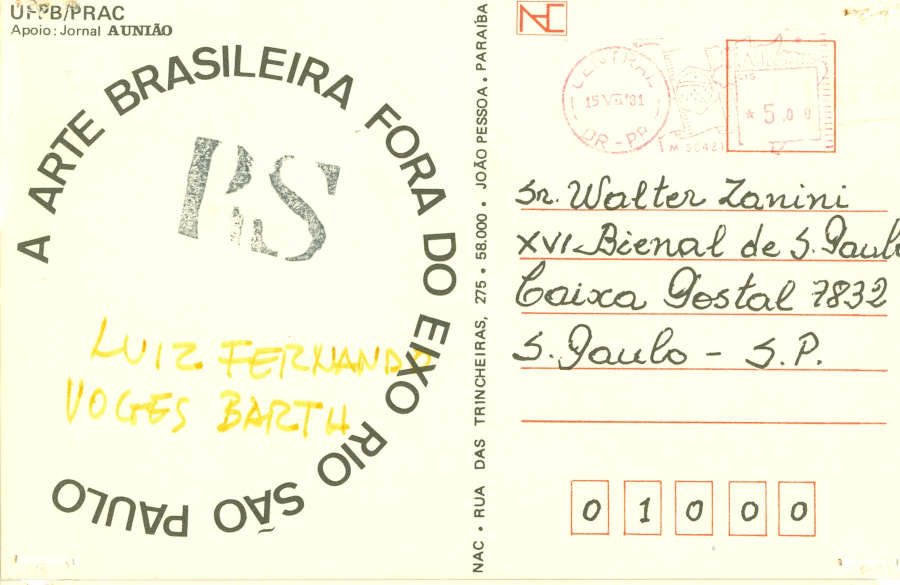 UFPB/PRAC
Apoio: Jornal A UNIÃO
A ARTE BRASILEIRA FORA DO EIXO RIO SÃO PAULO
RS
LUIZ FERNANDO
VOGES BARTH
NAC • RUA DAS TRINCHEIRAS, 275 • 58.000 • JOÃO PESSOA • PARAÍBA
NAC
CENTRAL
15 VII '81
DR-PR
5,00
Sr. Walter Zanini
XVI-Bienal de S. Paulo
Caixa Postal 7832
S. Paulo - S.P.
0 1 0 0 0